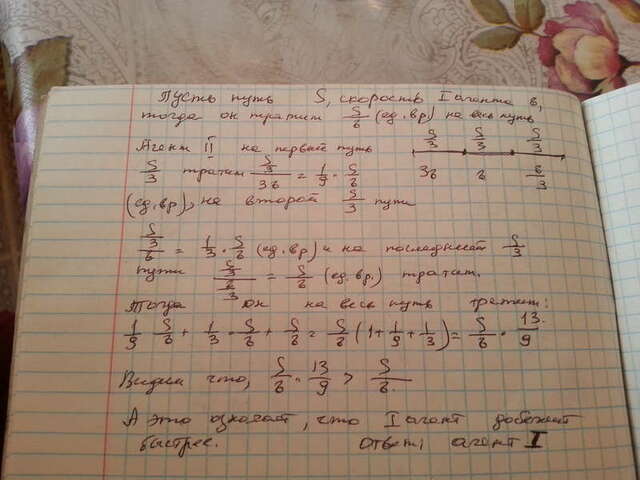 Пусть путь S, скорость I агента в,
тогда он тратит S/в (ед.вр) на весь путь
Агент II на первый путь S/3 S/3 S/3
S/3 тратит (S/3)/3в = 1/9 · S/в 3в в в/3
(ед.вр), на второй S/3 пути
(S/3)/в = 1/3 · S/в (ед.вр) и на последнем S/3
пути (S/3)/(в/3) = S/в (ед.вр.) тратит.
Тогда он на весь путь тратит:
1/9 S/в + 1/3 · S/в + S/в = S/в (1 + 1/9 + 1/3) = S/в · 13/9
Видим что, S/в · 13/9 > S/в.
А это означает, что I агент добежит
быстрее. Ответ: агент I